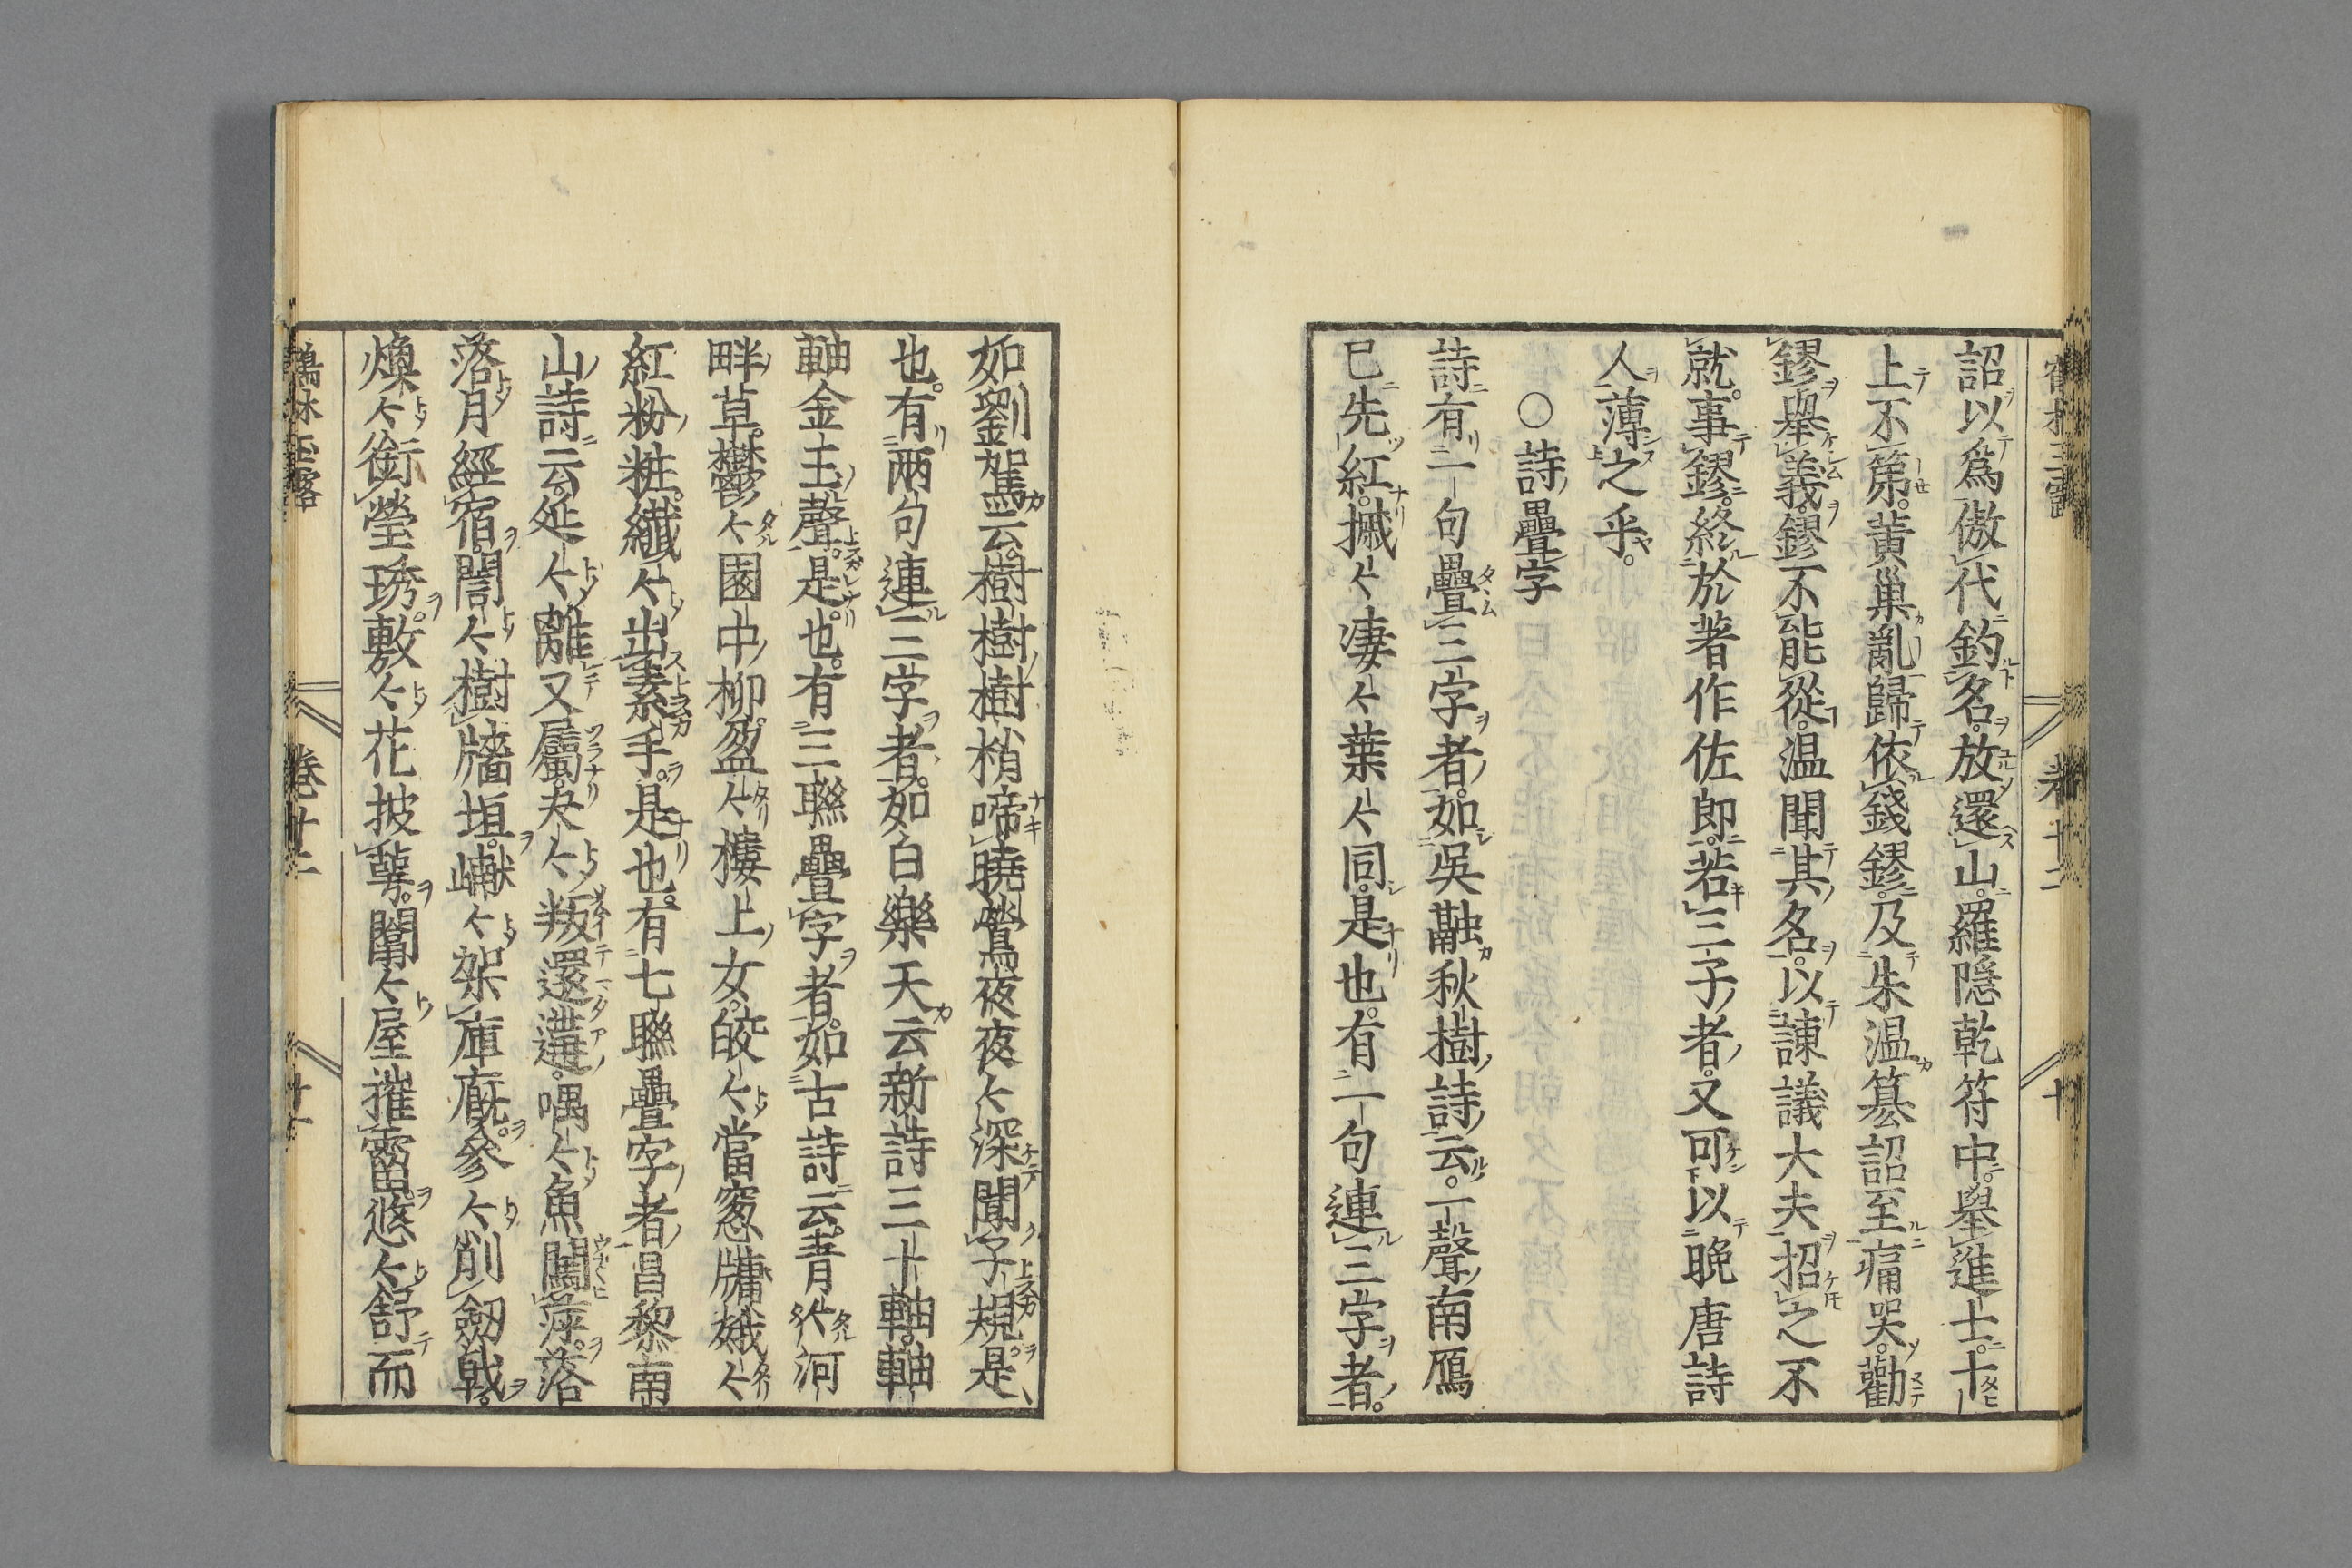 詔以爲傲代釣名放還山羅隠乾符中舉進士十
上不第黄巢亂歸依錢鏐及朱温簒詔至痛哭勸
鏐舉義鏐不能從温聞其名以諌議大夫招之不
就事鏐終於著作佐郎若三子者又可以晩唐詩
人薄之乎
○詩疊字
詩有一句疊三字者如吳融秋樹詩云一聲南鴈
已先紅摵〻凄〻葉〻同是也有一句連三字者
如劉駕云樹樹樹梢啼曉鶯夜夜〻深聞子規是
也有兩句連三字者如白樂天云新詩三十軸軸
軸金玉聲是也有三聯疊字者如古詩云青〻河
畔草鬱〻園中柳盈〻樓上女皎〻當窓牖娥〻
紅粉粧纎〻出素手是也有七聯疊字者昌黎南
山詩云延〻離又屬夬〻叛還遘喁〻魚闖萍落
落月經宿誾〻樹牆垣巘〻架庫廐參〻削劒戟
煥〻銜瑩琇敷〻花披萼闟〻屋摧霤悠〻舒而
鶴林玉露 卷十二